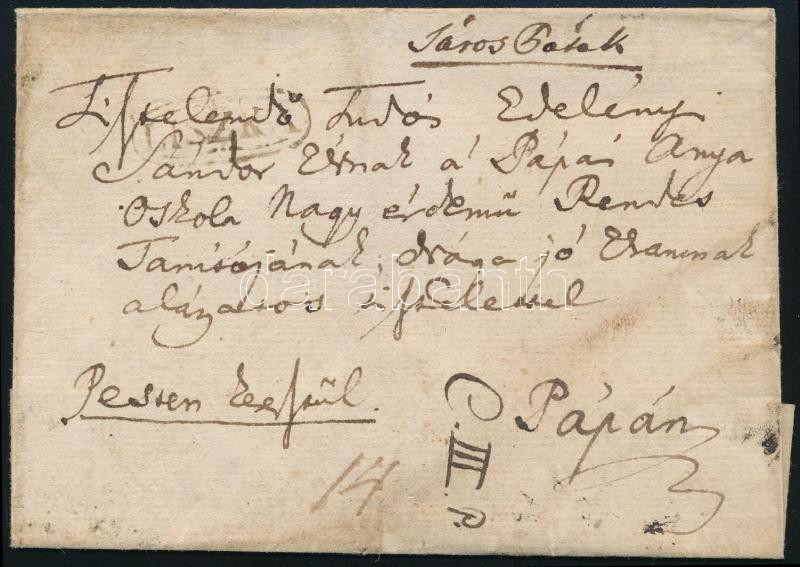 Sáros Patak
Tisztelendő Tudós Edelényi
Sándor Úrnak á Pápai Anya
Oskola Nagy érdemű Rendes
Tanítójának, drága jó Uramnak
alázatos tisztelettel
Pesten keresztül.
Pápán
14
darabanth